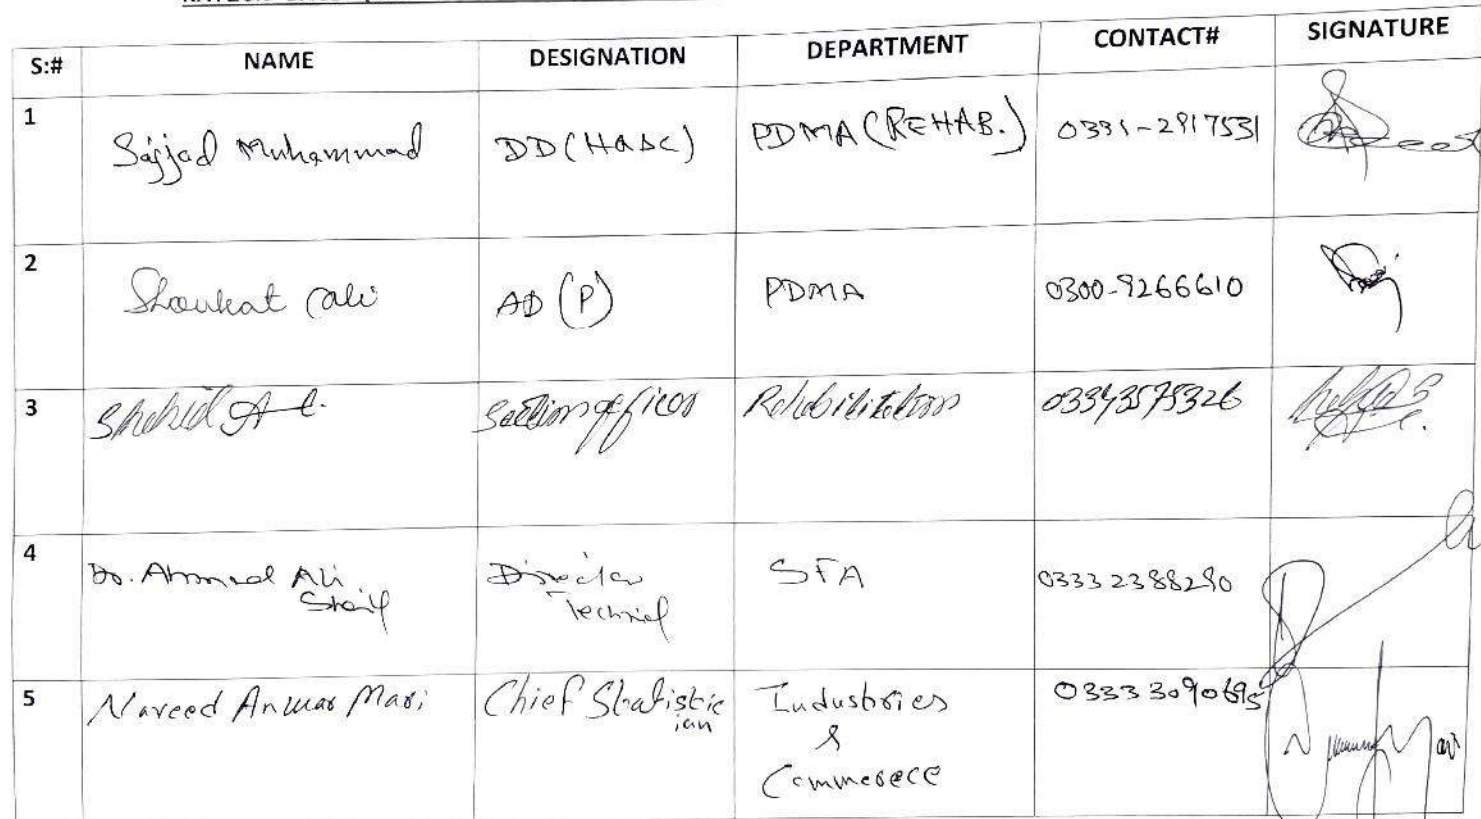 S:# NAME DESIGNATION DEPARTMENT CONTACT# SIGNATURE
1 Sajjad Muhammad DD(H&DC) PDMA (REHAB.) 0331-2917531
2 Shoukat Ali AD (P) PDMA 0300-9266610
3 Shahid Section officer Rehabilitation 03343575326
4 Dr. Ahmed Ali Director SFA 03332388290
Technical
5 Naveed Anwar Mari Chief Statistic Industries 03333090695
ian &
Commerece